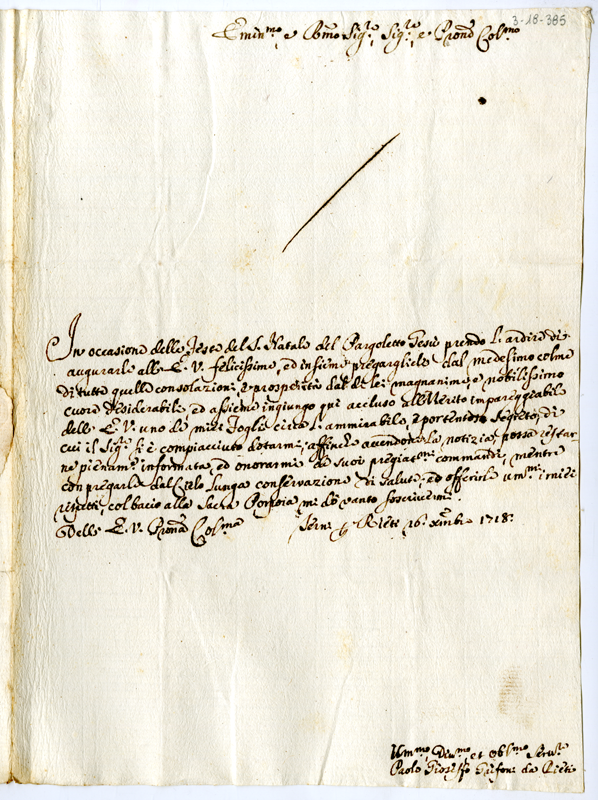 3-18-385
Emin.mo e R.mo Sig.re Sig.re e Pron Col.mo
In occasione delle feste del S. Natale del Pargoletto Gesù prendo l'ardire di
augurarle alla E. V. felicissime, ed insieme pregargliele dal medesimo colme
di tutte quelle consolazioni, e prosperità dal di lei magnanimo, e nobilissimo
cuore desiderabile, ed assieme ingiungo quì accluso all Merito impareggiabile
della E. V. uno de miei Foglii circa l'ammirabile, e portentoso segreto, di
cui il Sig.re si è compiacciuto dotarmi, affinche avendone la notizia possa restar-
ne pienam.e informata, ed onorarmi de suoi pregiat.mi commandi, mentre
con pregarle dal Cielo lunga conservazione di Salute, ed offerirle um.mi i miei
rispetti, col bacio alla Sacra Porpora mi dò vanto soscrivermi
Della E. V. Pron Col.ma
Rieti 16. Xmbre 1718.
Um.mo Div.mo et Obl.mo Serv.re
Paolo Gioseffo Trifoni da Rieti